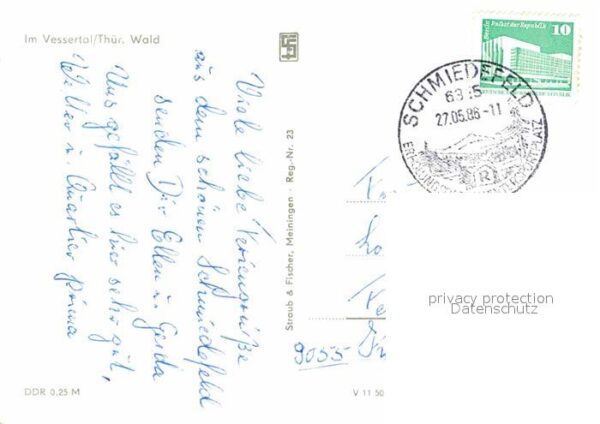 Im Vessertal/Thür. Wald
Viele liebe Feriengrüße
aus dem schönen Schmiedefeld
senden Dir Ellen u. Gerda
Uns gefällt es hier sehr gut,
Wetter u. Quartier prima
DDR 0,25 M
Straub & Fischer, Meiningen · Reg.-Nr. 23
V 11 50
Berlin Palast der Republik
10
SCHMIEDEFELD
27.05.86-11
9055
privacy protection
Datenschutz